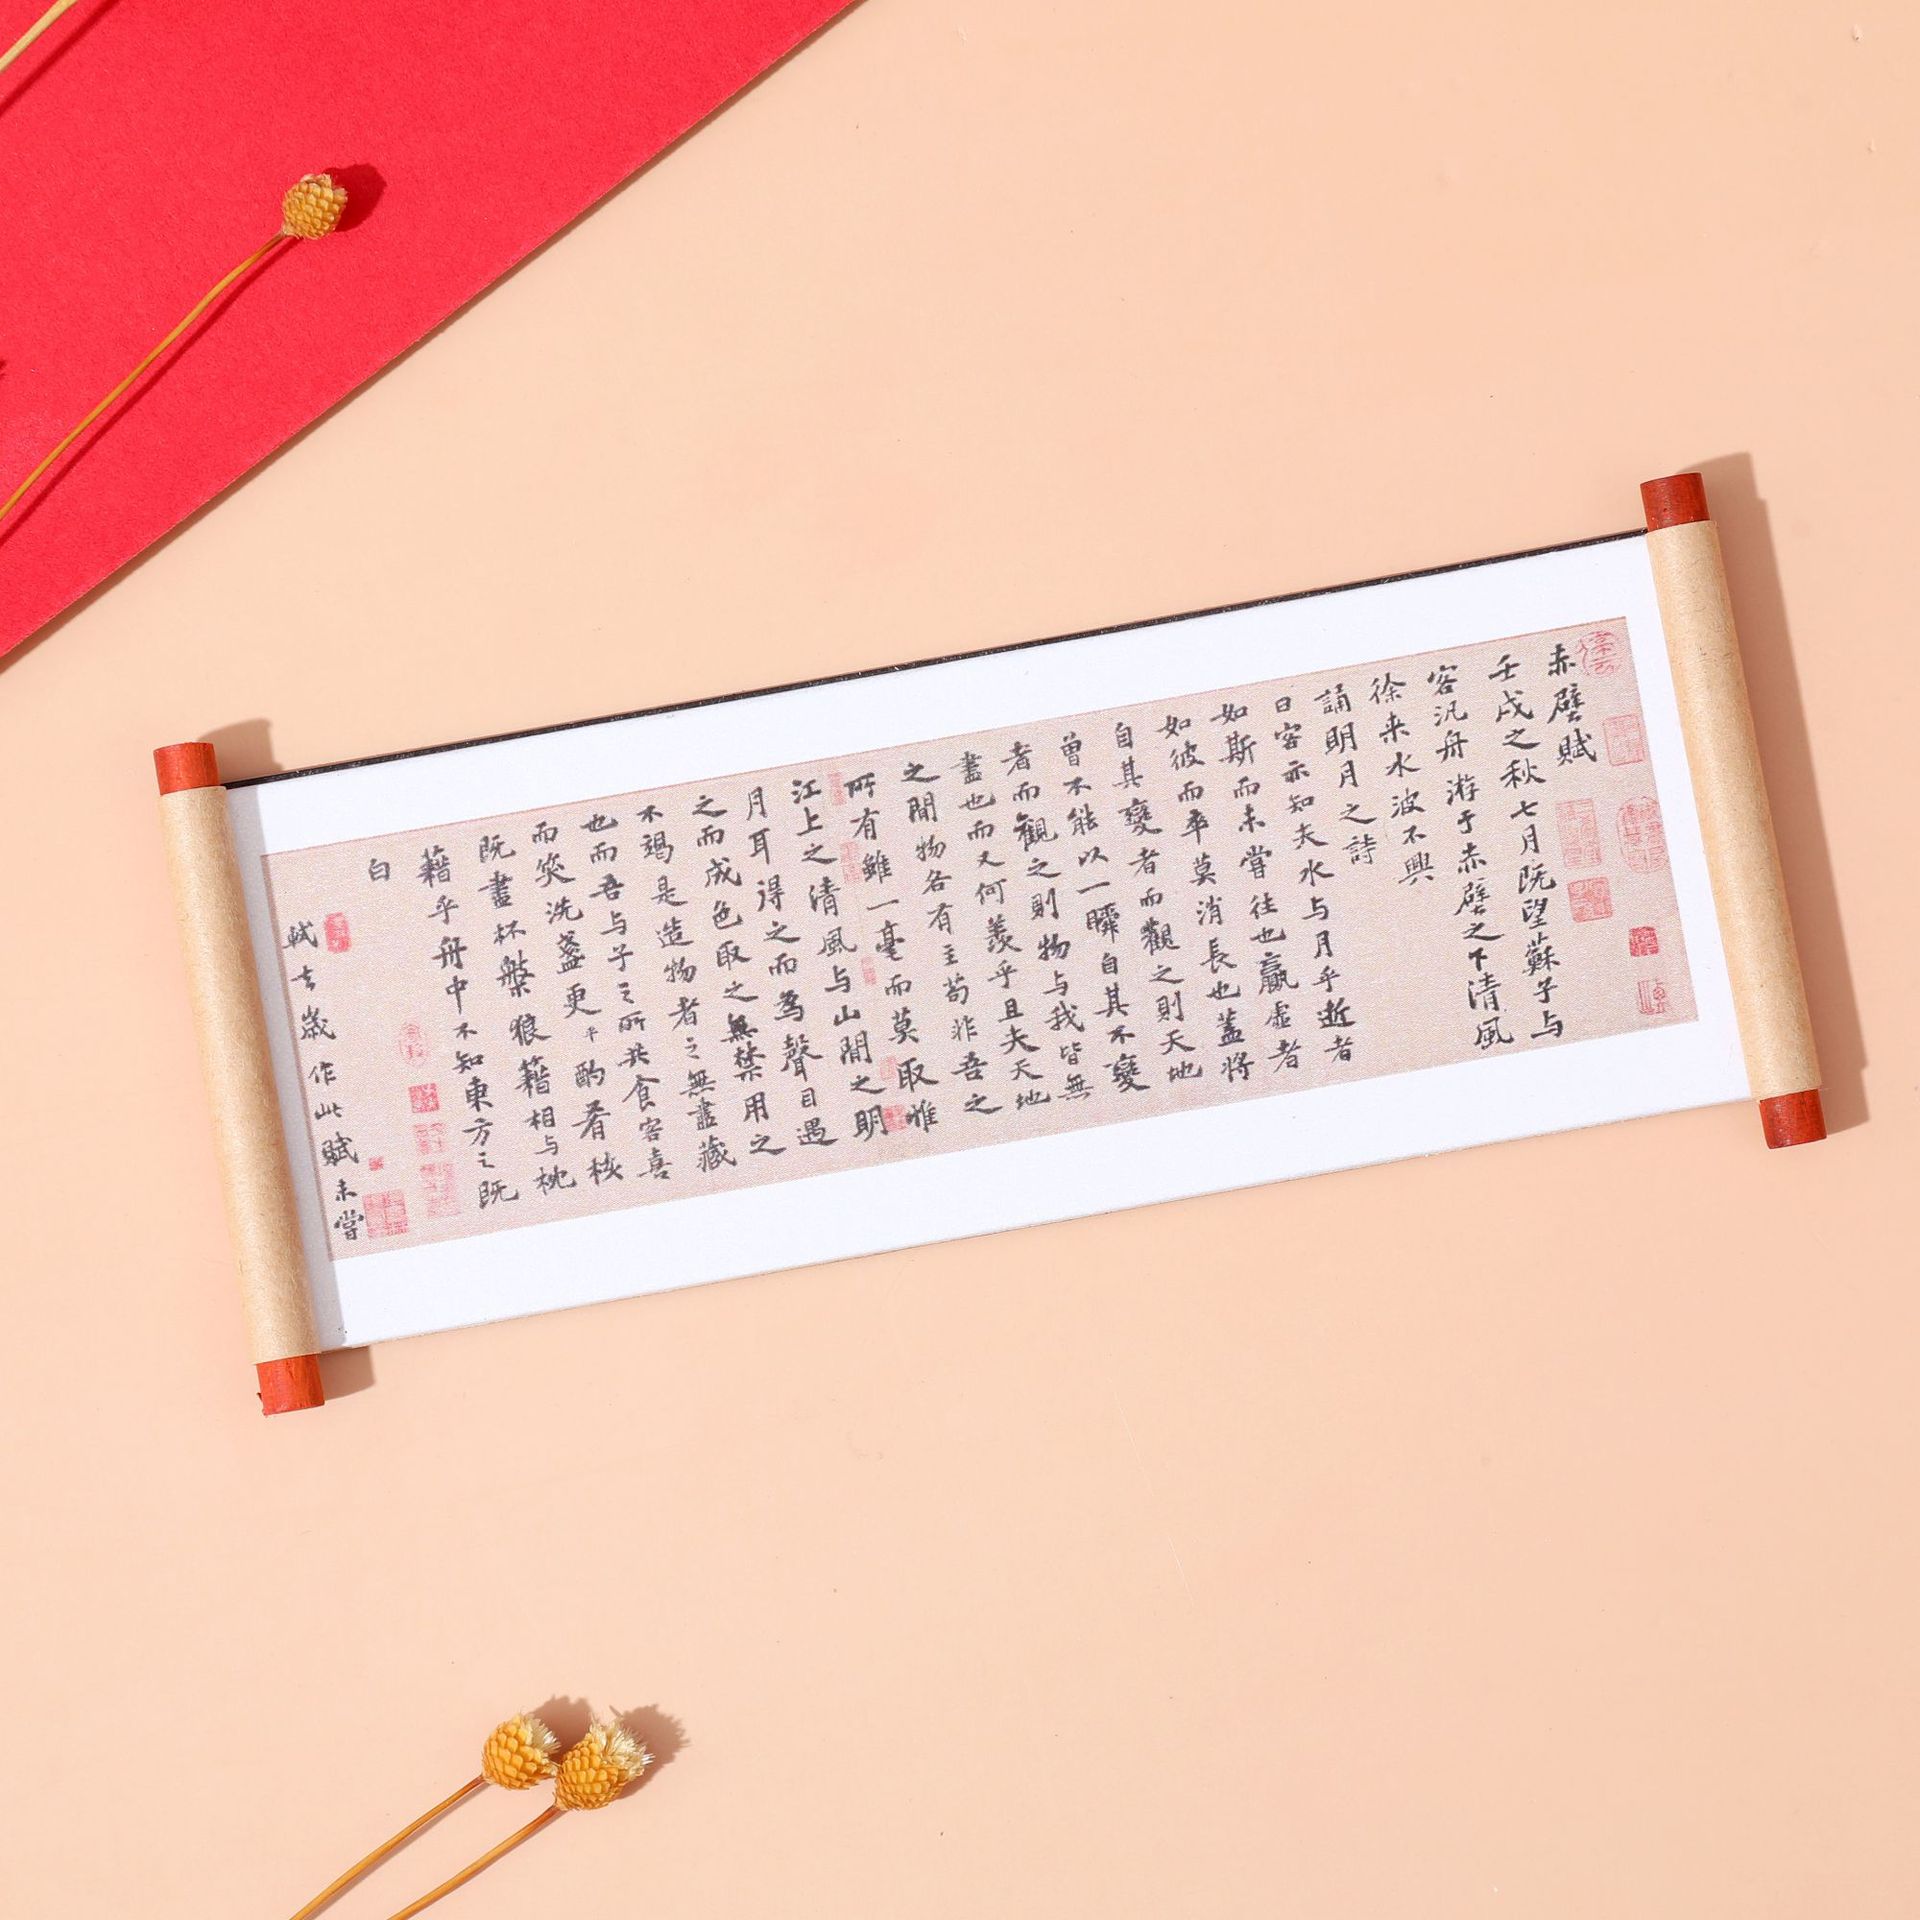 赤壁賦
壬戌之秋七月既望蘇子与
客汎舟游于赤壁之下清風
徐来水波不興
誦明月之詩
曰客亦知夫水与月乎逝者
如斯而未嘗往也贏虚者
如彼而卒莫消長也蓋將
自其變者而觀之則天地
曽不能以一瞬自其不變
者而觀之則物与我皆無
盡也而又何羨乎且夫天地
之間物各有主苟非吾之
所有雖一毫而莫取惟
江上之清風与山間之明
月耳得之而為聲目遇
之而成色取之無禁用之
不竭是造物者之無盡藏
也而吾与子之所共食客喜
而笑洗盞更酌肴核
既盡杯槃狼籍相与枕
籍乎舟中不知東方之既
白
軾去歳作此賦未嘗